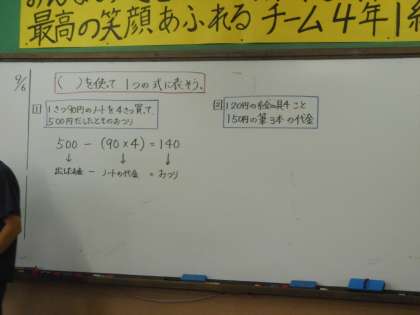 最高の笑顔あふれる チーム4年1組
9/6
( )を使って 1つの式に表そう。
1 1さつ90円のノートを4さつ買って、
500円だしたときのおつり
500 - (90×4) = 140
↓ ↓ ↓
- ノートの代金 = おつり
120円の 4こと
150円の筆3本の代金